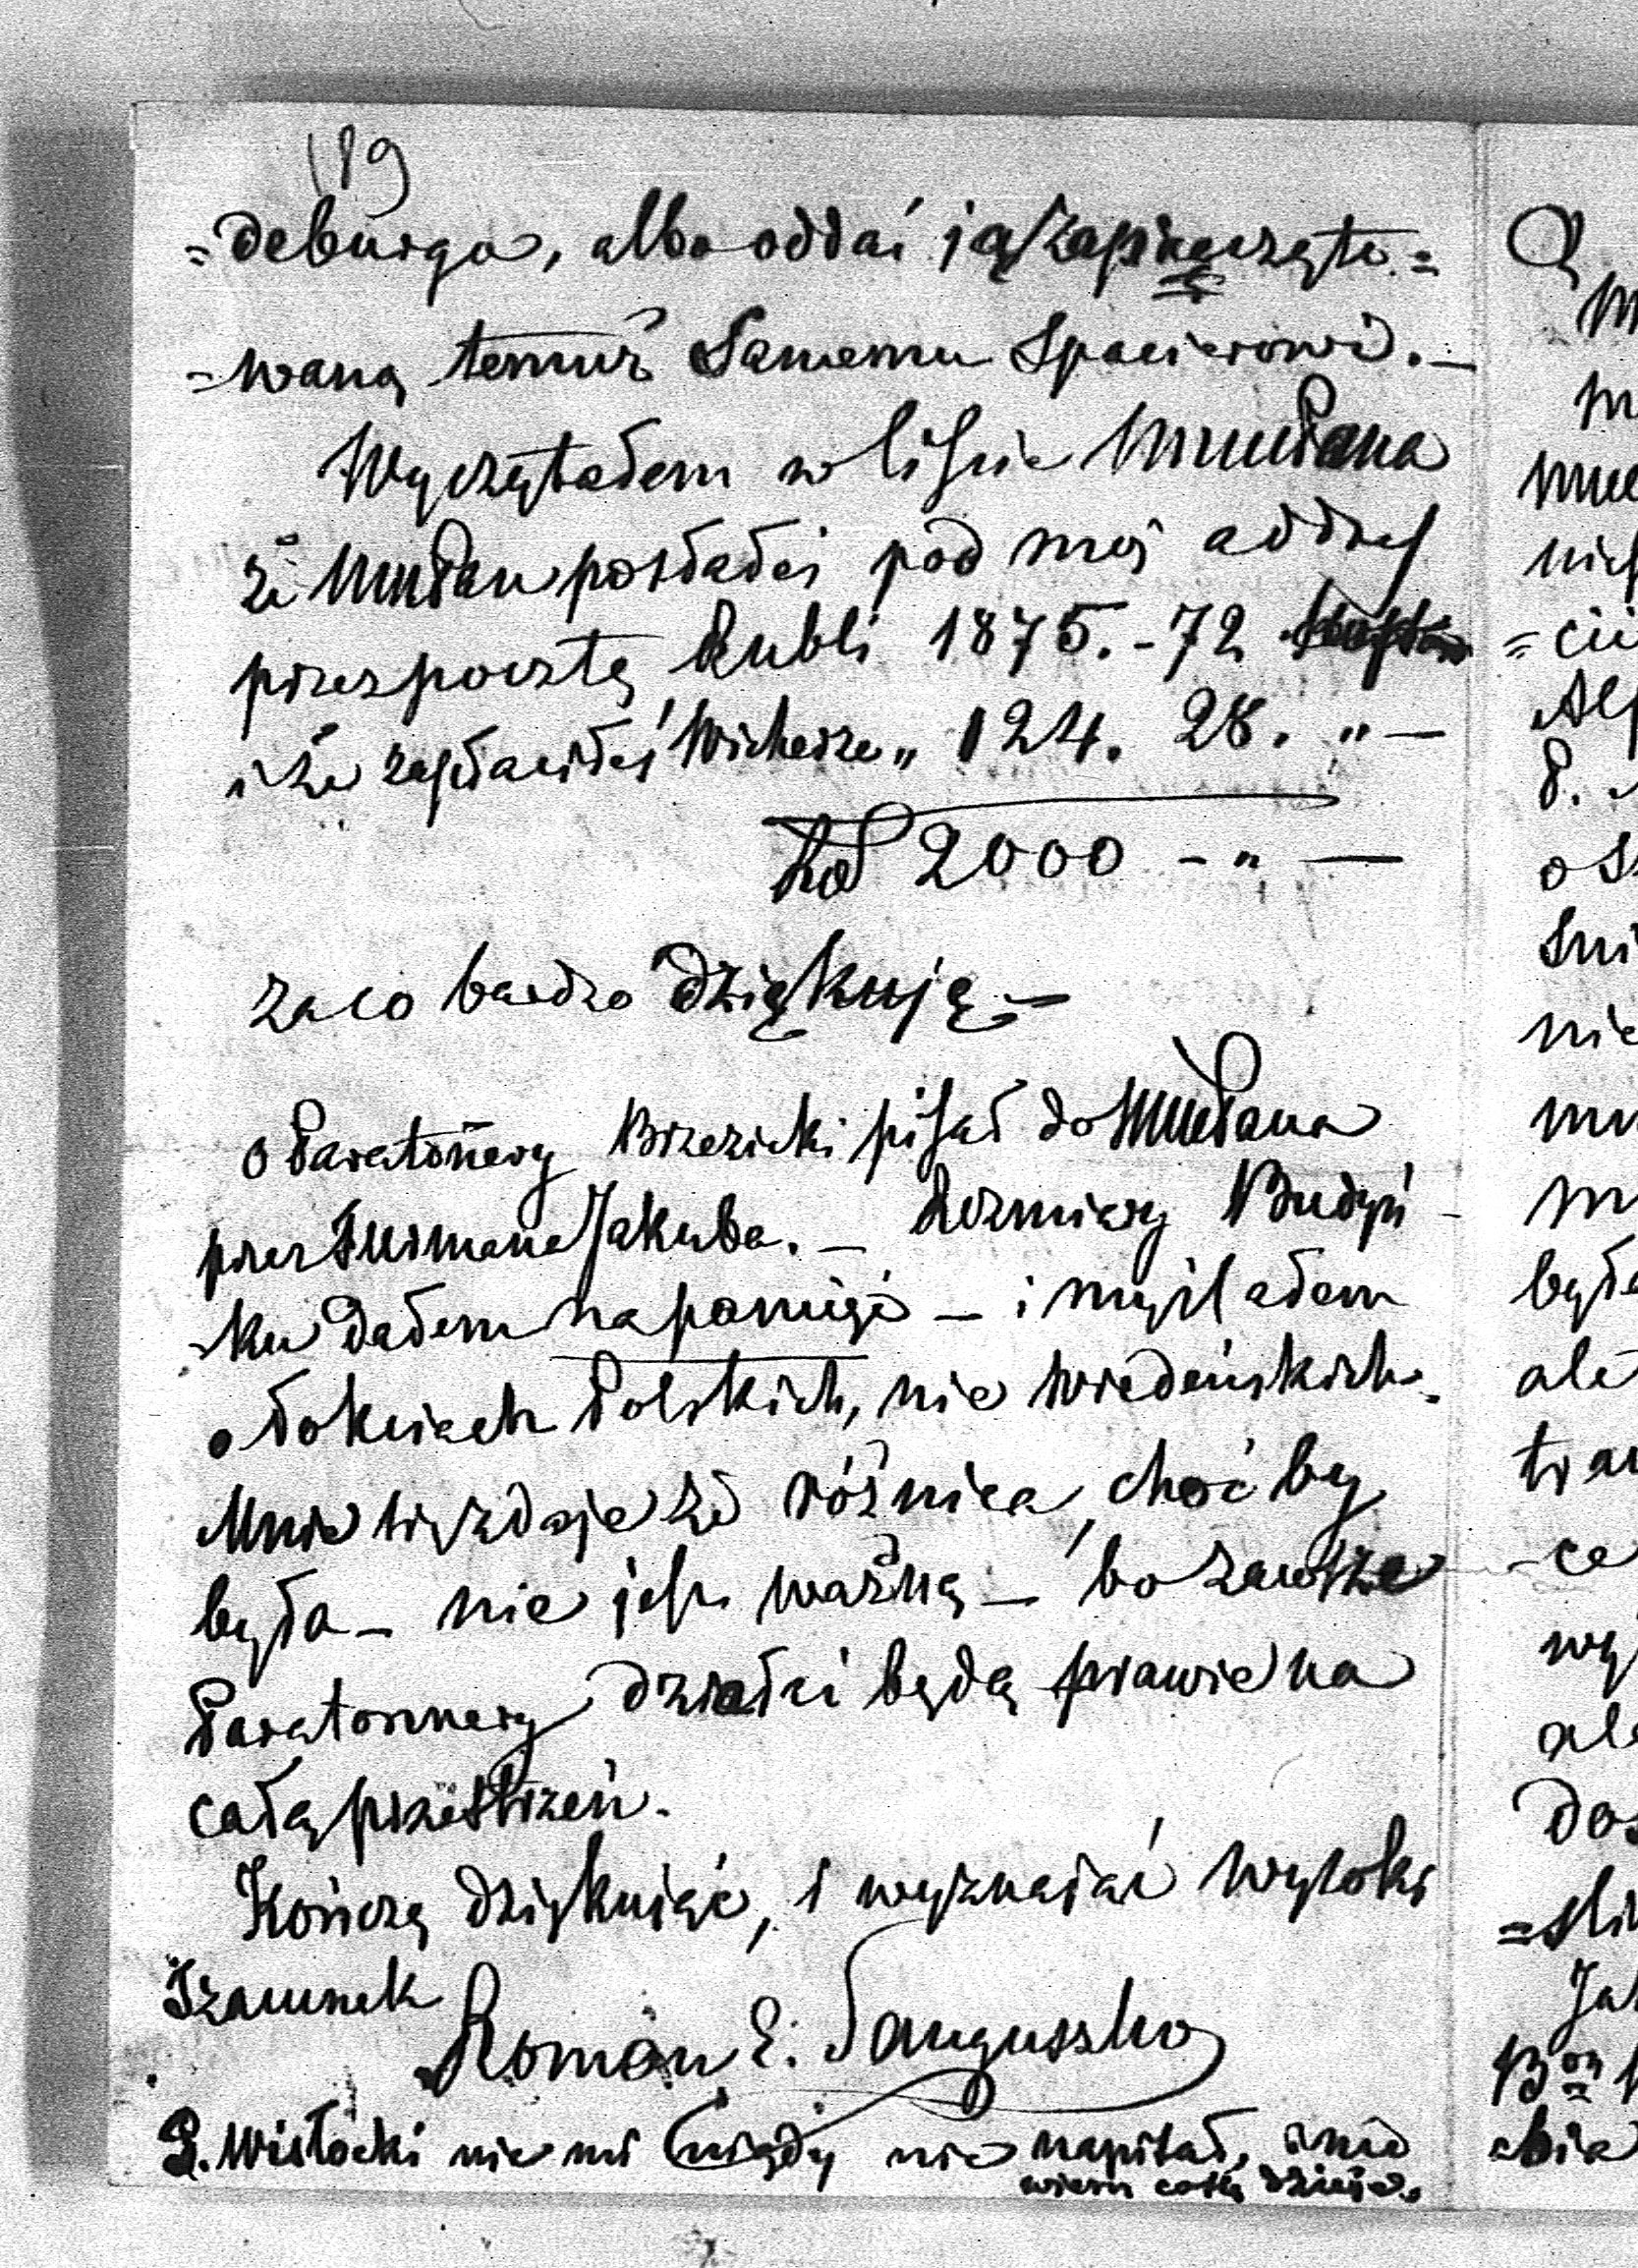 189
=deburga, albo oddać ją zapieczęto=
=waną temuż Samemu Spacierowi. —
Wyczytałem w liście WMMPana
że WMMPan posłałeś pod mój addres
przez pocztę Rubli 1875. - 72
i że zapłaciłeś Wicherze „ 124. 28. „ —
Rsł 2000 - „ —
za co bardzo dziękuję —
o Paratonery Brzezicki pisał do WMMPana
przez Jakuba. — Rozmiary Budyn
-ku dałem na pamięć — i myślałem
o łokciach Polskich, nie wiedeńskich.
Mnie się zdaje że różnica, choć by
była — nie jest ważną — bo zawsze
Paratonnery działać będą prawie na
całą przestrzeń.
Kończę dziękując, i wyznając wysoki
Szacunek
Roman E. Sanguszko
P. Wisłocki nie mi nigdy nie napisał, i nie
wiem co się dzieje.
Q
M
m
mu
nie
=cie
Alf
P.
o s
sni
nie
mu
m
była
ale
tra
-ce
wy
ale
Dos
=sli
Jak
Bon
-bie